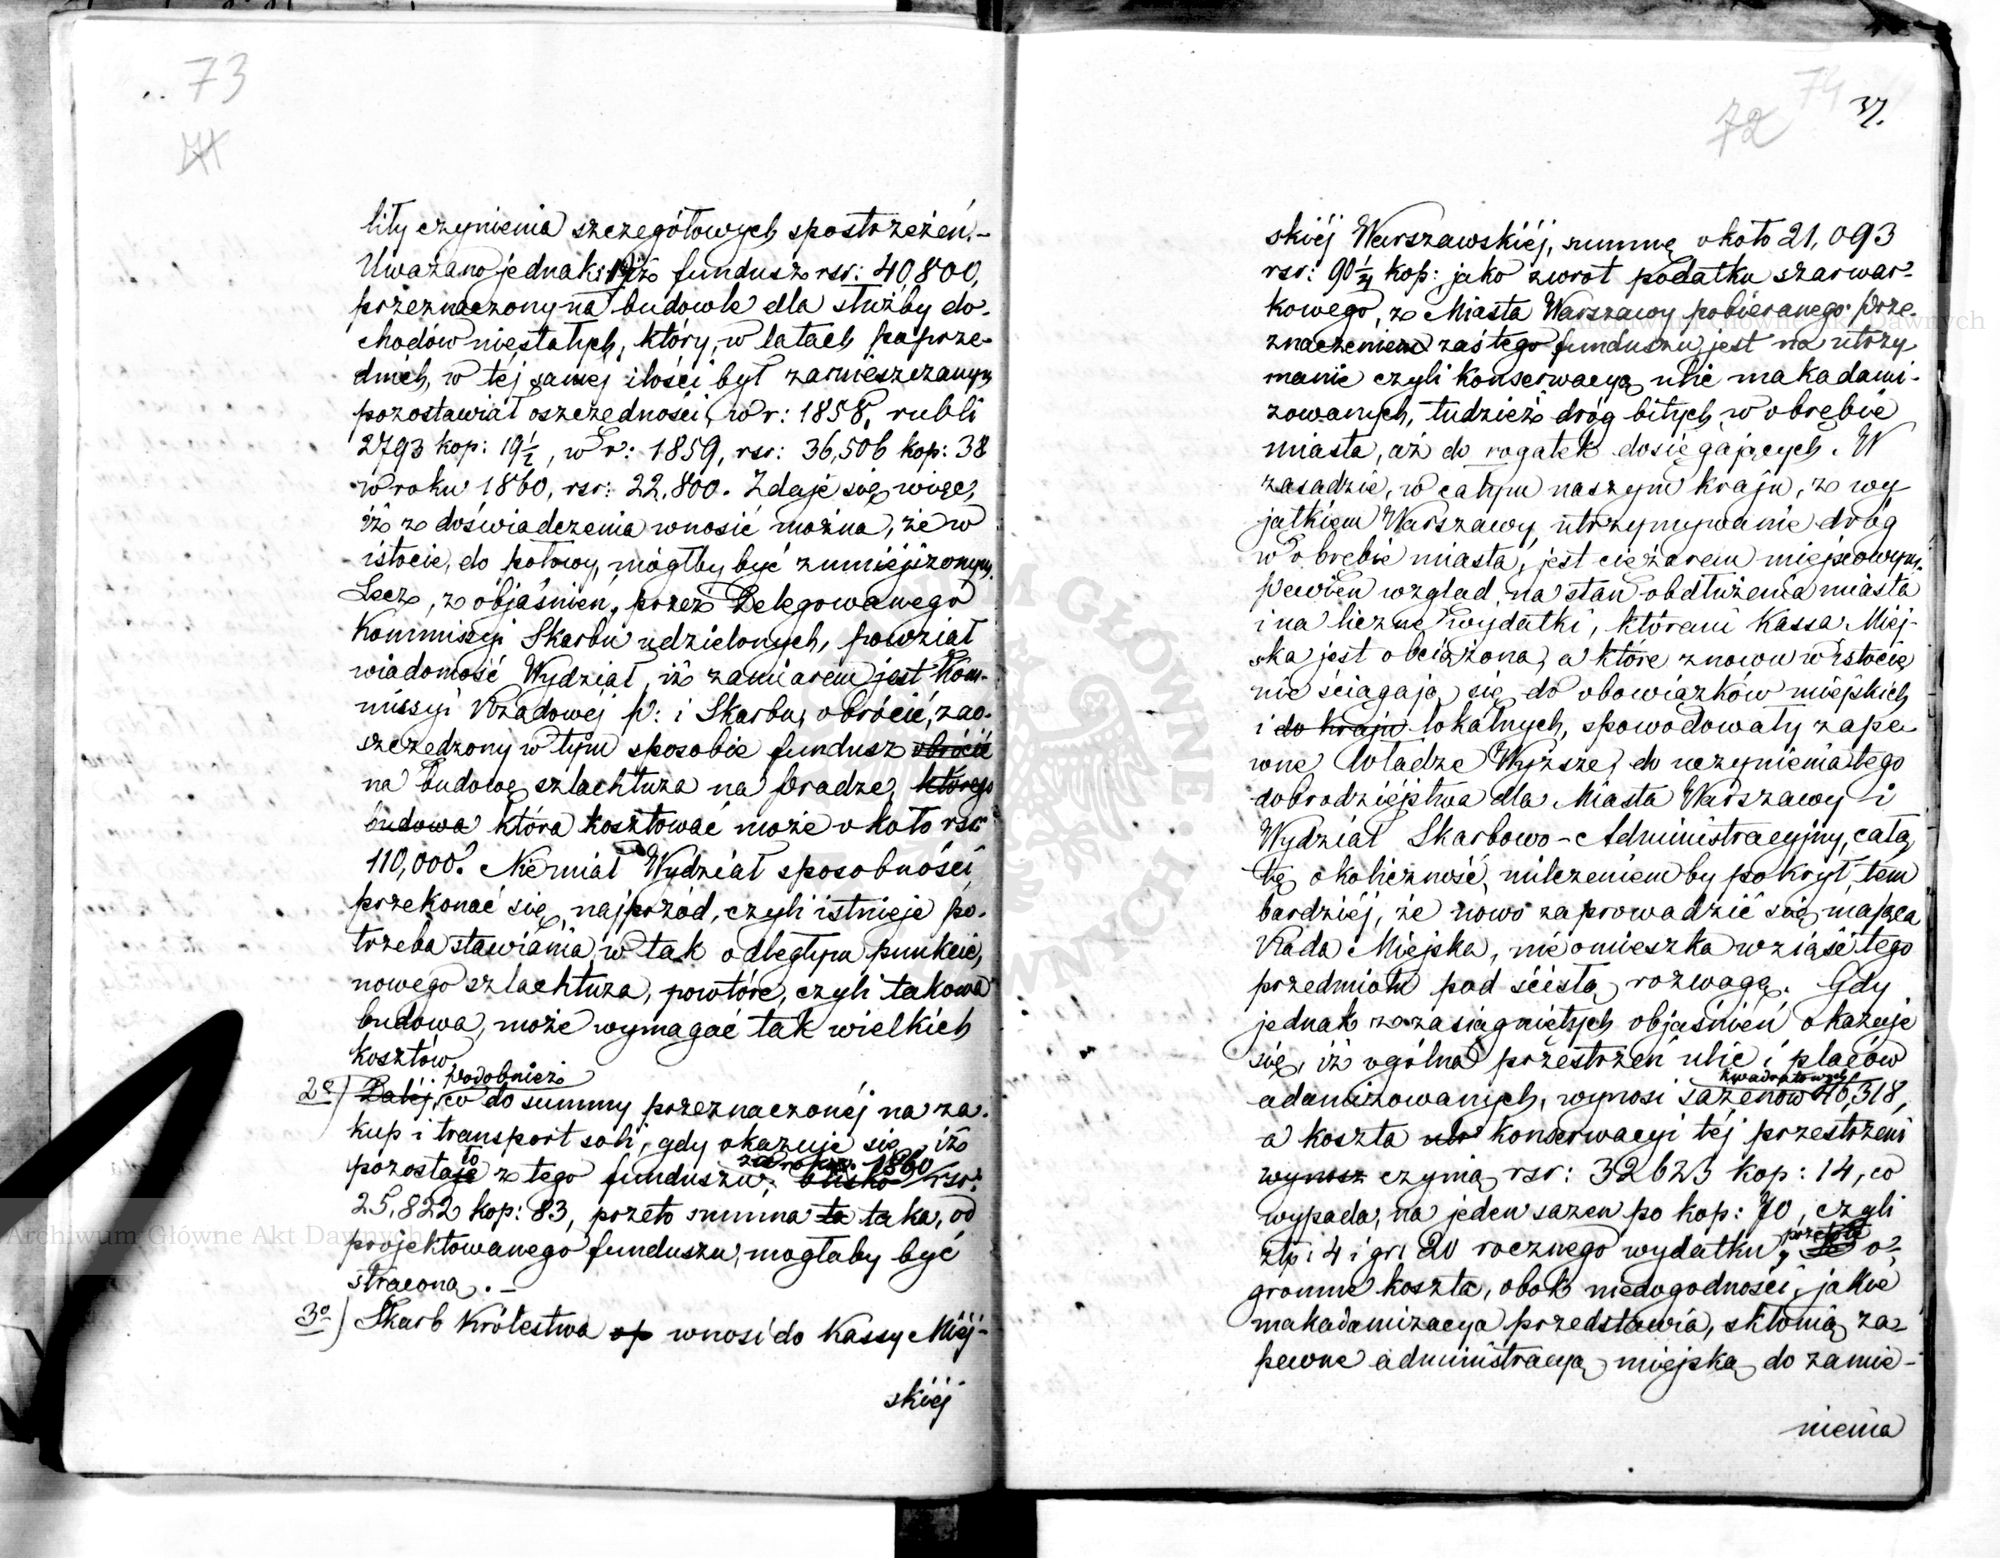 73
lity czynienia szczegółowych spostrzeżeń.–
Uważano jednak: 1º iż fundusz rsr: 40,800,
przeznaczony na budowle dla służby do-
chodów niestałych, który, w latach poprze-
dnich, w tej samej ilości był zamieszczanym
pozostawiał oszczędności, w r: 1858, rubli
2793 kop: 19½, w r: 1859, rsr: 36,506 kop: 38
w roku 1860, rsr: 22,800. Zdaje się więc,
iż z doświadczenia wnosić można, że w
istocie, do połowy, mógłby być zmniejszonym.
Lecz, z objaśnień, przez Delegowanego
Kommissyi Skarbu udzielonych, powziął
wiadomość Wydział, iż zamiarem jest Kom-
missyi Rządowéj P: i Skarbu, obrócić, zao-
szczędzony w tym sposobie fundusz obrócić
na budowę szlachtuza na Pradze, którego
budowa która kosztować może około rsr:
110,000. Nie miał Wydział sposobności
przekonać się, najprzód, czyli istnieje po-
trzeba stawiania, w tak odległym punkcie,
nowego szlachtuza, powtóre, czyli takowa
budowa, może wymagać tak wielkich
kosztów.
podobnież
2º) Daléj, co do summy przeznaczonéj na za-
kup i transport soli, gdy okazuje się, iż
to za rok 1860
pozostaje z tego funduszu, blisko rsr:
25,822 kop: 83, przeto summa ta taka, od
projektowanego funduszu, mogłaby być
strąconą. –
3º) Skarb Królestwa op wnosi do Kassy Miéj-
skiéj
74
72
37.
skiéj Warszawskiéj, summę około 21,093
rsr: 90½ kop: jako zwrot podatku szarwar-
kowego, z Miasta Warszawy pobieranego. Prze-
znaczeniem zaś tego funduszu jest na utrzy
manie czyli konserwacyą ulic makadami-
zowanych, tudzież dróg bitych w obrębie
miasta, aż do rogatek dosięgających. W
zasadzie, w całym naszym kraju, z wy
jątkiem Warszawy, utrzymywanie dróg
w obrębie miasta, jest ciężarem miejscowym.
Pewien wzgląd, na stan obdłużenia miasta
i na liczne wydatki, któremi Kassa Miéj-
ska jest obciążona, a które znowu w istocie
nie ściągają się do obowiązków miejskich
i do kraju lokalnych, spowodowały zape
wne Władze Wyższe, do uczynienia tego
dobrodziejstwa dla Miasta Warszawy i
Wydział Skarbowo-Administracyjny, całą
tę okoliczność, milczeniem by pokrył, tem
bardziéj, że nowo zaprowadzić się mająca
Rada Miejska, nie omieszka wziąść tego
przedmiotu pod ścisłą rozwagę. Gdy
jednak z zasiągniętych objaśnień okazuje
się, iż ogólna przestrzeń ulic i placów
kwadratowych
adamizowanych, wynosi sażenów 46,318,
a koszta utr konserwacyi téj przestrzeni
wynosz czynią rsr: 32623 kop: 14, co
wypada, na jeden sażen po kop: 70, czyli
przeto te
złp: 4 i gr: 20 rocznego wydatku, o-
gromne koszta, obok niedogodności, jakie
makadamizacya przedstawia, skłonią za-
pewne administracyą miejską do zamie-
nienia
Archiwum Główne Akt Dawnych
Archiwum Główne Akt Dawnych